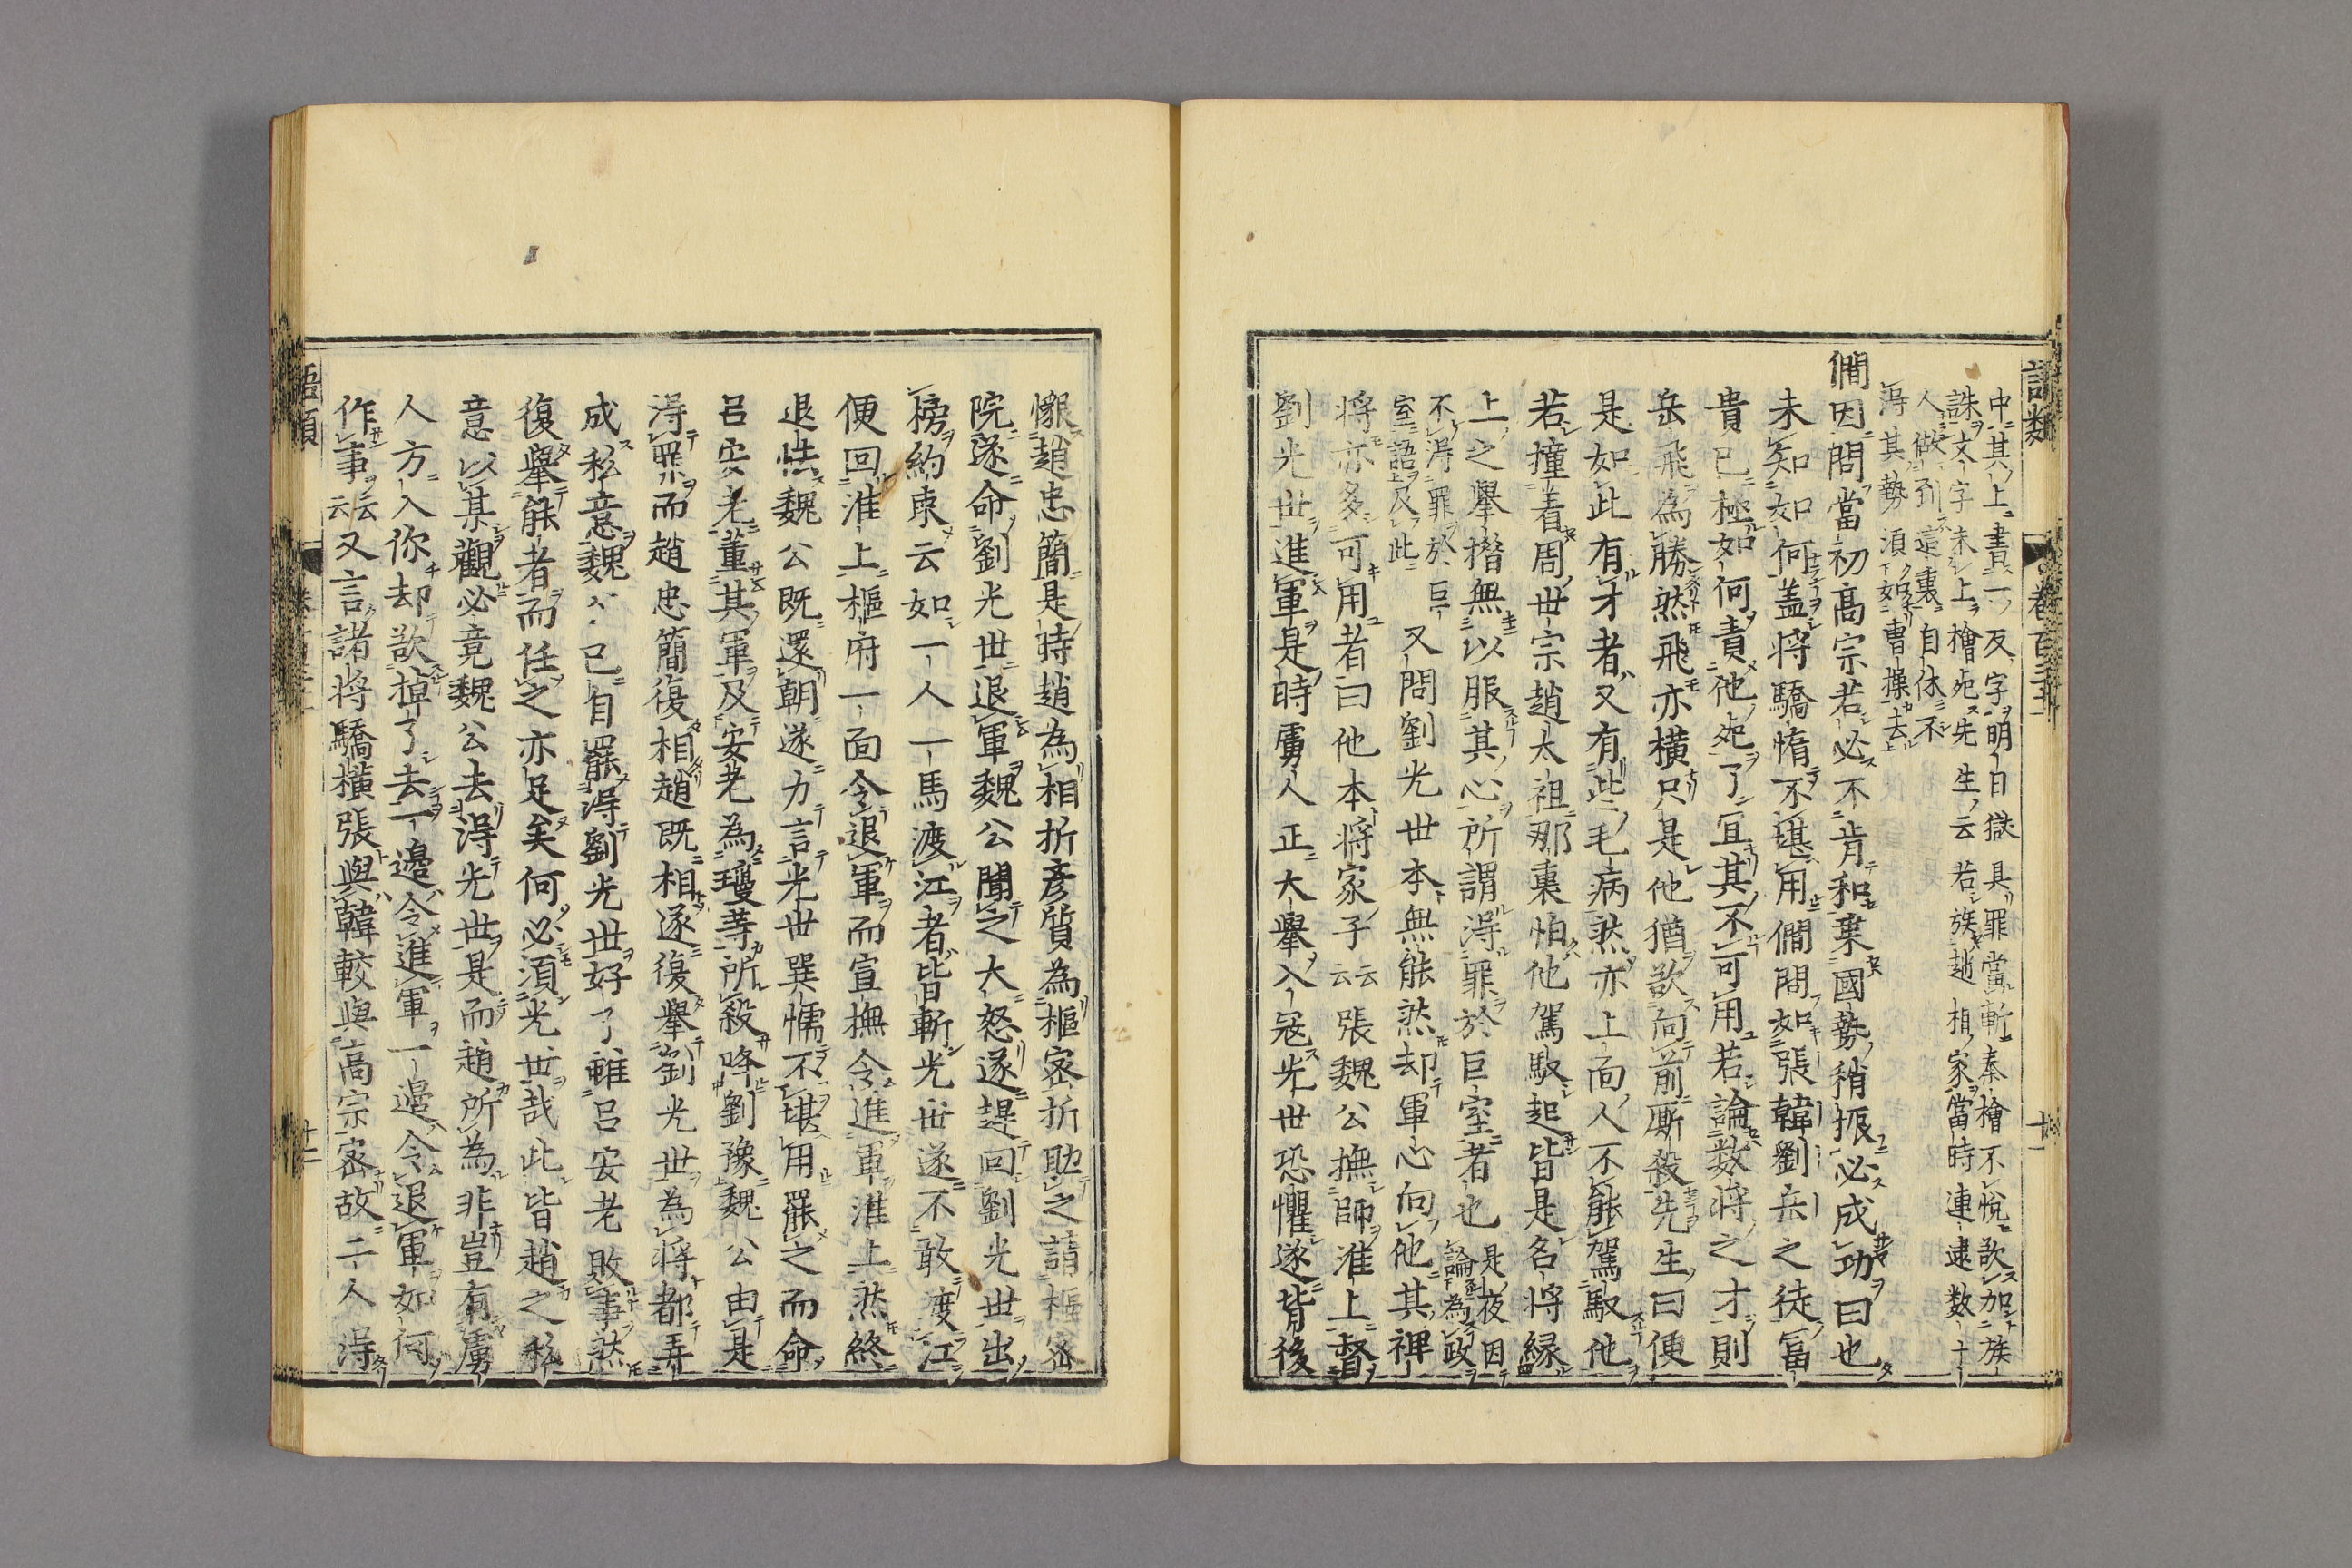 語類 卷百三十一 十一
中其上書一反字明日獄具罪當斬秦檜不悅欲加族
誅文字未上檜死先生云若族趙相家當時連逮數十
人做到這裏自休不
得其勢須如曹操去
僩因問當初高宗若必不肯和棄國勢稍振必成功曰也
未知如何蓋將驕惰不堪用僩問如張韓劉岳之徒富
貴已極如何責他死了宜其不可用若論數將之才則
岳飛為勝然飛亦橫只是他猶欲向前廝殺先生曰便
是如此有才者又有些毛病然亦上面人不能駕馭他
若撞着周世宗趙太祖那裏怕他駕馭起皆是名將緣
上之舉措無以服其心所謂得罪於巨室者也是夜因論為政
不得罪於巨室語及此
又問劉光世本無能然却軍心向他其裨
將亦多可用者曰他本將家子云云張魏公撫師淮上督
劉光世進軍是時虜人正大舉入寇光世恐懼遂背後
懇趙忠簡是時趙為相折彥質為樞密折助之請樞密
院遂命劉光世退軍魏公聞之大怒遂趕回劉光世出
榜約束云如一人一馬渡江者皆斬光世遂不敢渡江
便回淮上樞府一面令退軍而宣撫令進軍淮上然終
退怯魏公既還朝遂力言光世巽懦不堪用罷之而命
呂安老董其軍及安老為瓊等所殺降劉豫魏公由是
得罪而趙忠簡復相趙既相遂復舉劉光世為將都弄
成私意魏公已自罷得劉光世好了雖呂安老敗事然
復舉能者而任之亦足矣何必須光世哉此皆趙之私
意以某觀必竟魏公去得光世是而趙所為非豈有虜
人方入你却欲掉了去一邊令進軍一邊令退軍如何
作事云云又言諸將驕橫張與韓較與高宗密故二人得
語類 十二